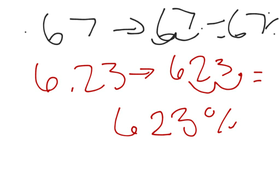 .67 → 67. = 67%
6.23 → 623. =
623%